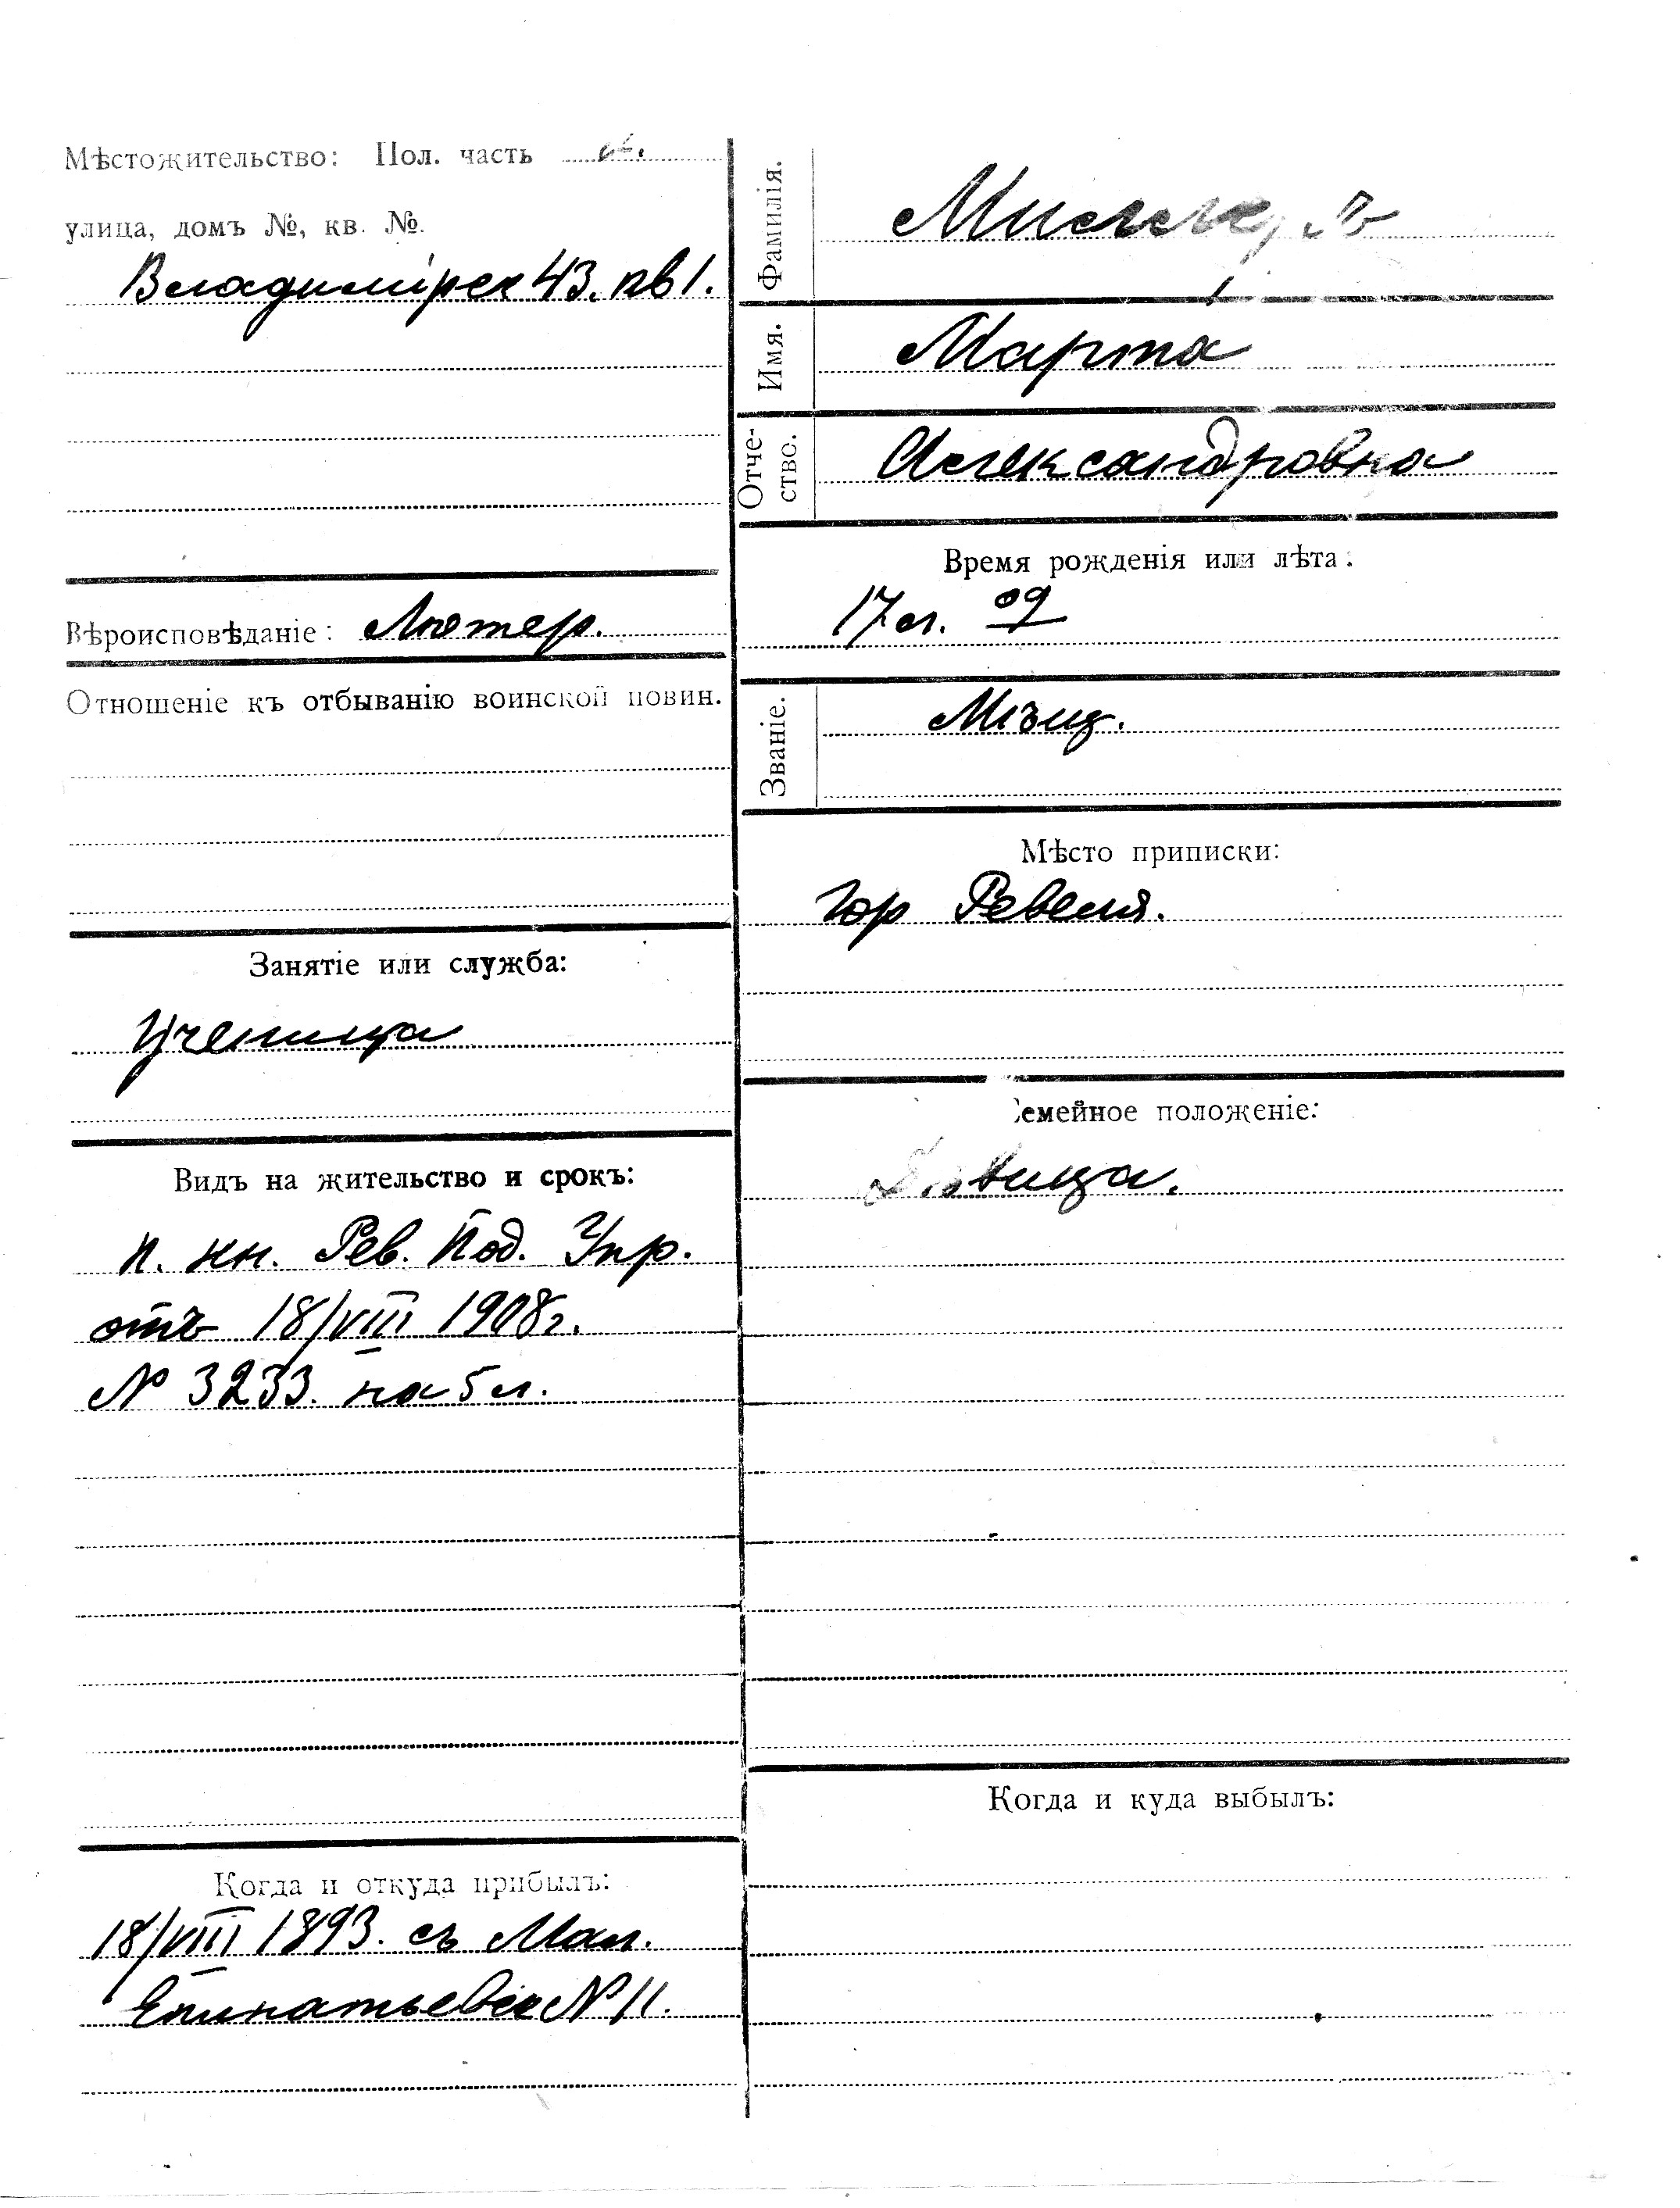 Мѣстожительство: Пол. часть
улица, домъ №, кв. №.
Владимірск 43. кв 1.
Вѣроисповѣданіе: Лютер.
Отношеніе къ отбыванію воинской повин.
Занятіе или служба:
Ученица
Видъ на жительство и срокъ:
п. кн. Рев. Под. Упр.
отъ 18/VIII 1908 г.
№ 3233. на 5 л.
Когда и откуда прибылъ:
18/VIII 1893. съ Мал.
№ 11.
Фамилія.
Имя. Марта
Отче-
ство. Александровна
Время рожденія или лѣта:
17 л. 09
Званіе. Мѣщ.
Мѣсто приписки:
Гор Ревеля.
Семейное положеніе:
Дѣвица.
Когда и куда выбылъ: